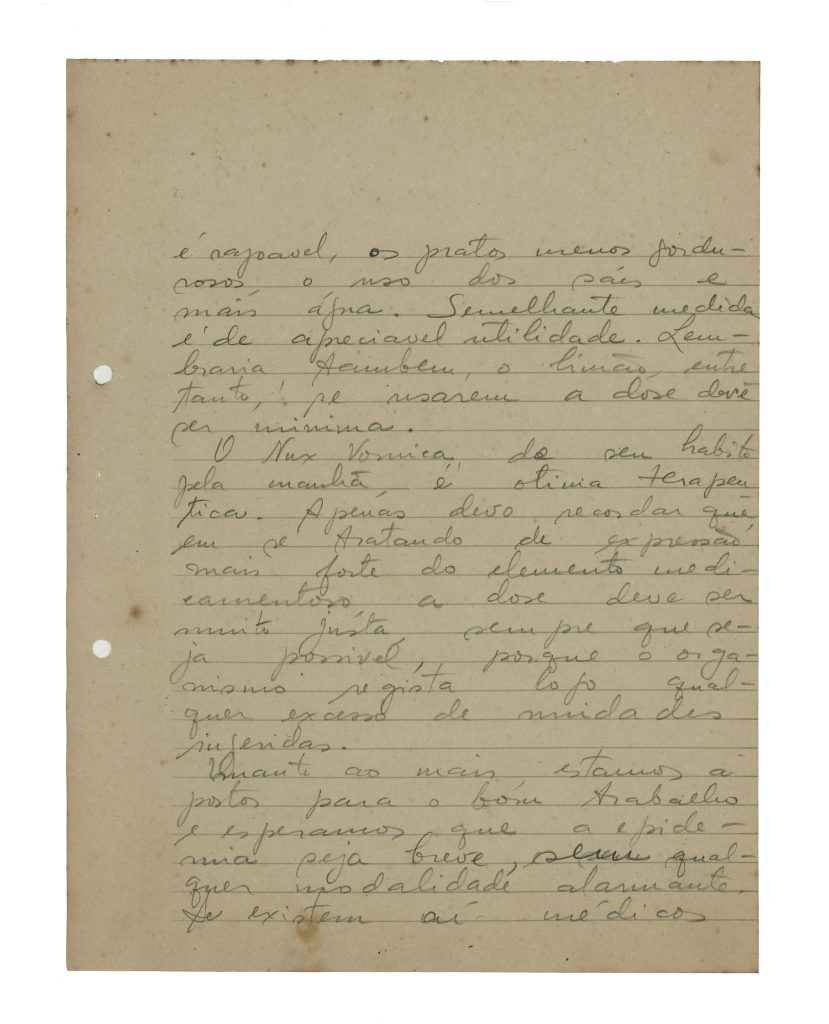 é razoavel, os pratos menos gordu-
rosos, o uso dos sáis e
mais água. Semelhante medida
é de apreciavel utilidade. Lem-
braria tambem, o limão, entre
tanto, se usarem a dóse deve
ser minima.
O Nux Vomica, do seu habito
pela manhã, é otima terapeu
tica. Apenas devo recordar que,
em se tratando de expressão
mais forte do elemento medi-
camentoso, a dose deve ser
muito justa, sempre que se-
ja possivel, porque o orga-
nismo regista logo qual-
quer excesso de unidades
ingeridas.
Quanto ao mais, estamos a
postos para o bom trabalho
e esperamos que a epide-
mia seja breve, sem qual-
quer modalidade alarmante.
Se existem aí médicos